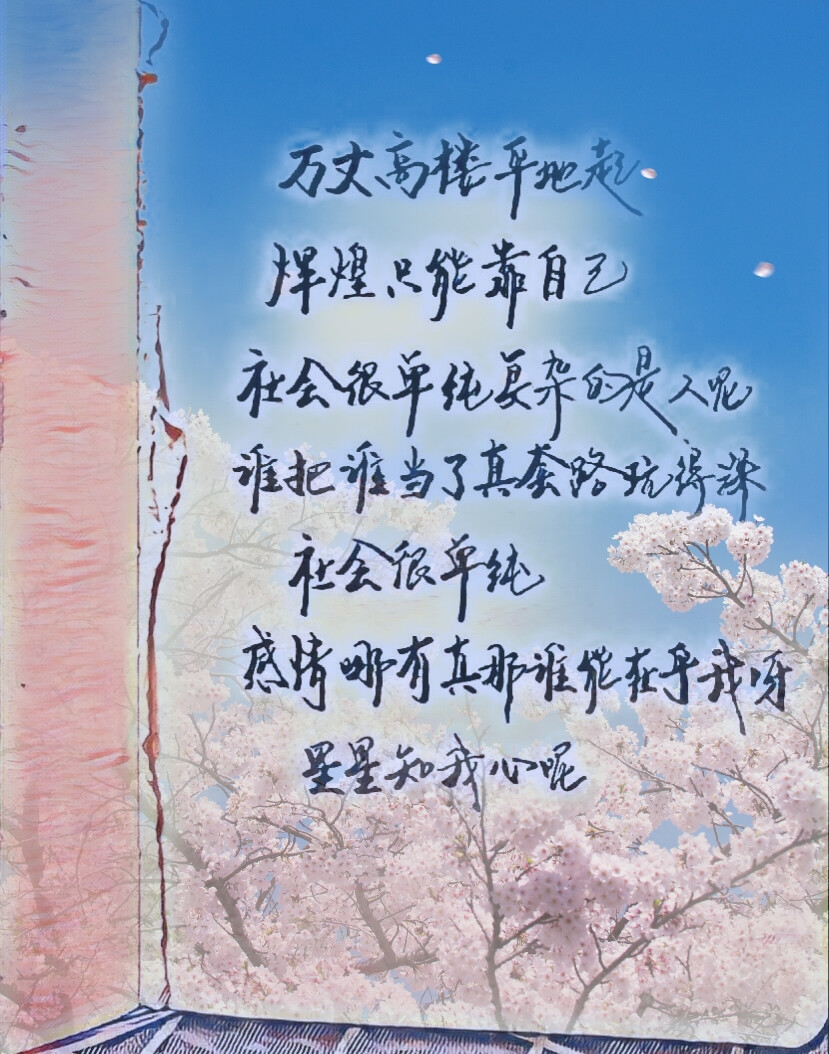 万丈高楼平地起
辉煌只能靠自己
社会很单纯复杂的是人呢
谁把谁当了真套路坑得深
社会很单纯
感情哪有真那谁能在乎我呀
星星知我心呢